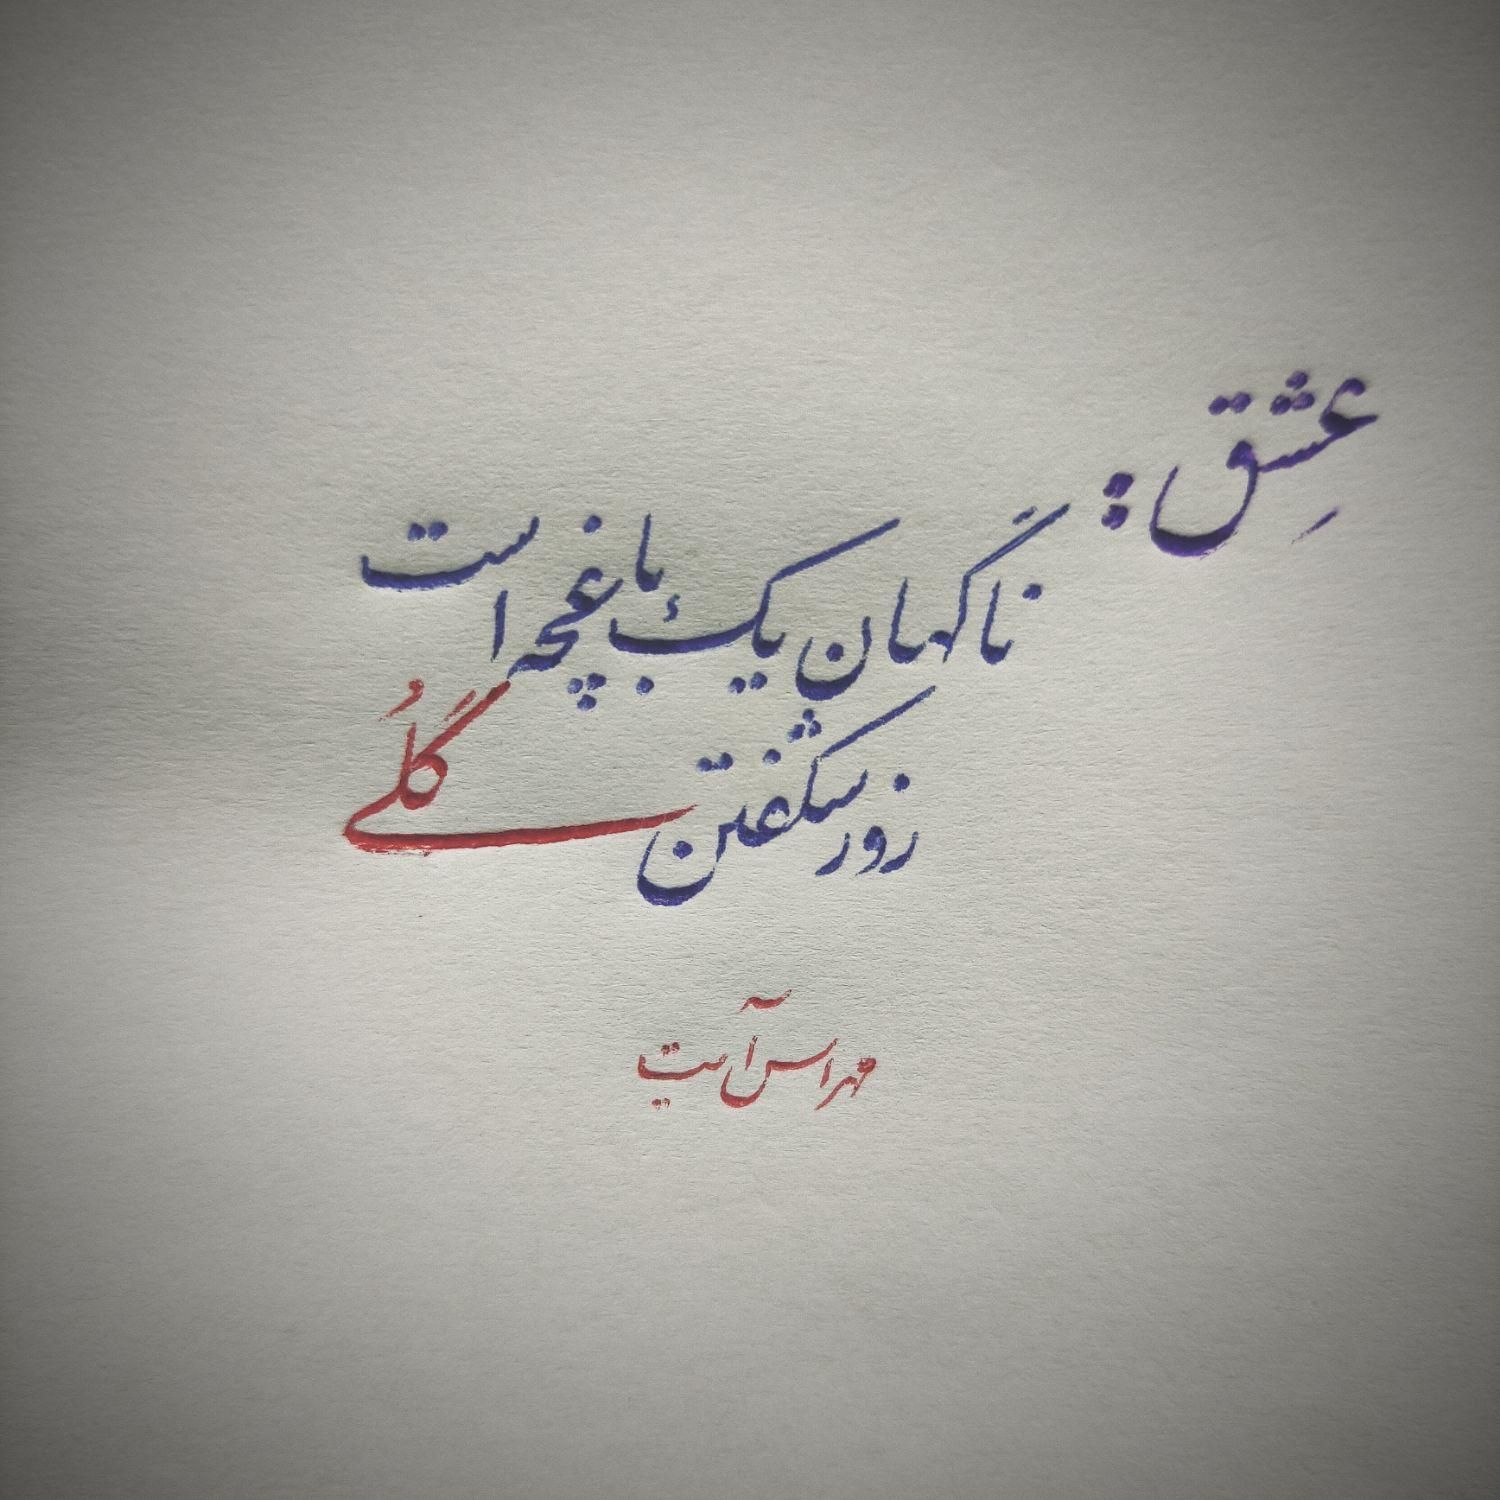 عِشق :
ناگهان یک باغچه است
روز شگفتن گُلے
مهراس آیت